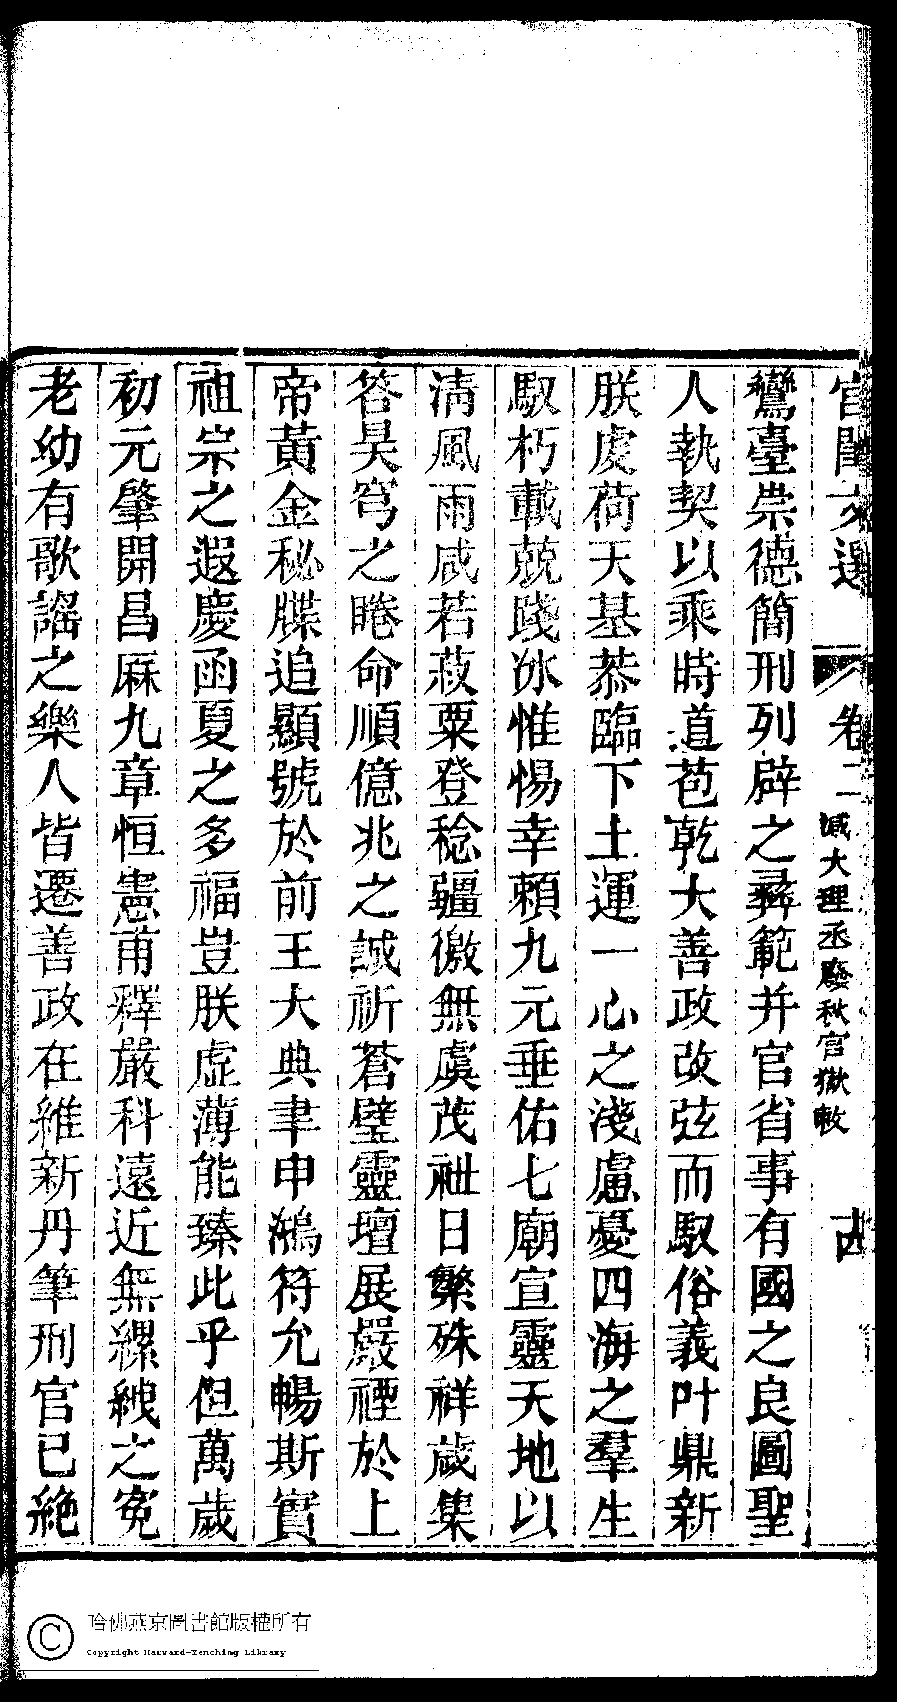 宮閨文選 卷二 減大理丞廢秋官獄敕 古
鸞臺崇德簡刑列辟之彞範并官省事有國之良圖聖
人執契以乘時道苞乾大善政改弦而馭俗義叶鼎新
朕虔荷天基恭臨下土運一心之淺慮憂四海之羣生
馭朽載兢踐冰惟惕幸賴九元垂佑七廟宣靈天地以
清風雨咸若菽粟登稔疆徼無虞茂祉日繁殊祥歲集
答昊穹之睠命順億兆之誠祈蒼璧靈壇展嚴禋於上
帝黃金秘牒追顯號於前王大典聿申鴻符允暢斯實
祖宗之遐慶函夏之多福豈朕虛薄能臻此乎但萬歲
初元肇開昌厤九章恒憲甫釋嚴科遠近無縲紲之冤
老幼有歌謡之樂人皆遷善政在維新丹筆刑官已絶
哈佛燕京圖書館版權所有
Copyright Harvard-Yenching Library